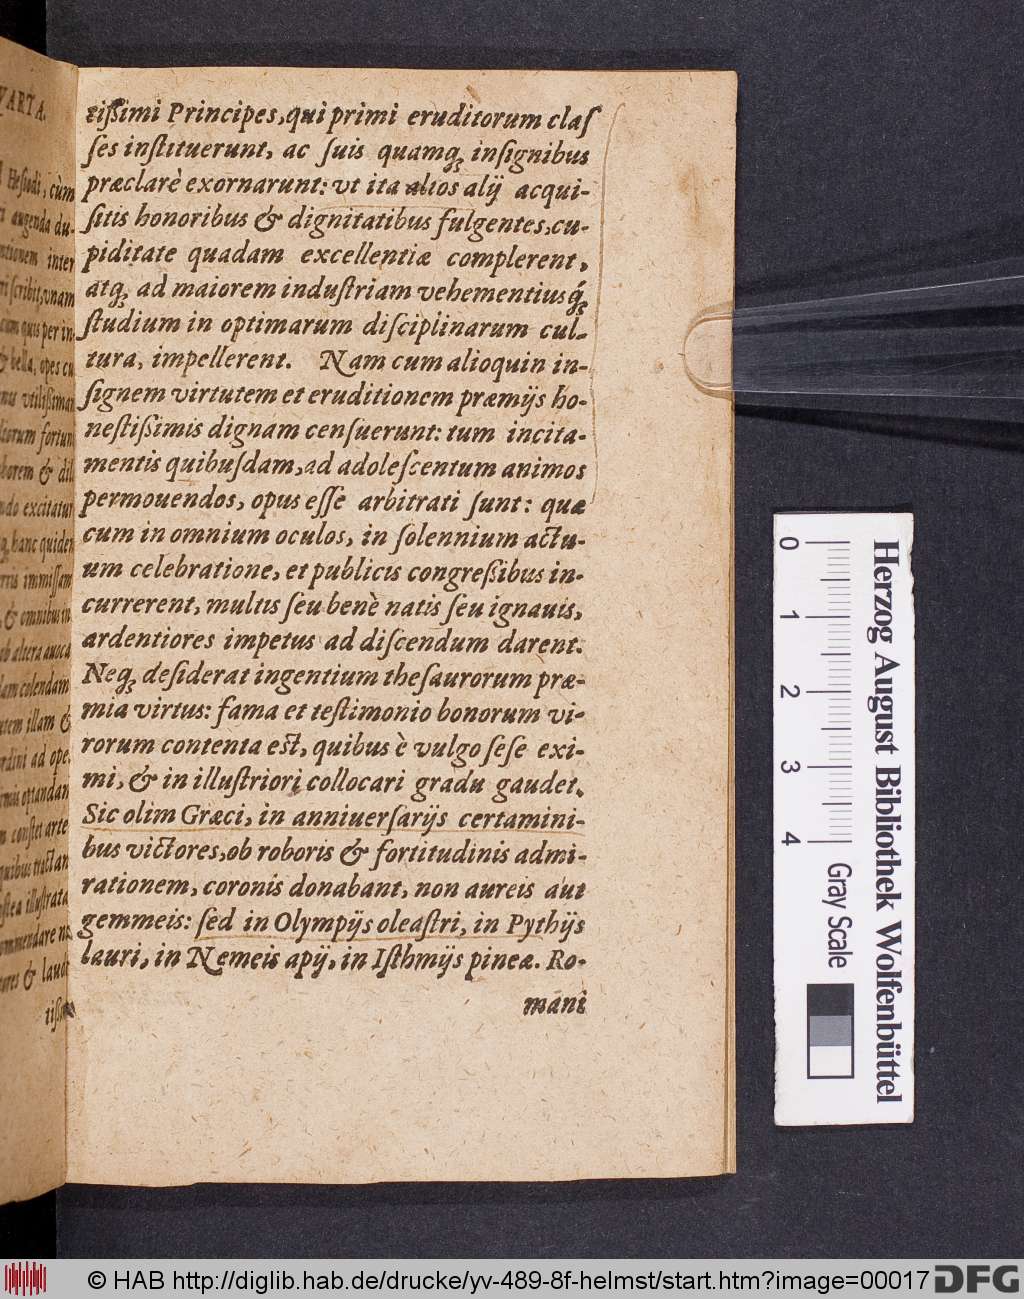 VARTA.
Hesiodi, cùm
augenda du-
inter
scribit, vnam
quis per in
bella, opes cu
vtilißimam
fortun
& dil
excitatur
hanc quidem
immissam
& omnibus in
ab altera auoca
colendam
illam &
ad ope
optandam
constet arte
quibus tractan
illustrata
commendare ne
& laudt
tißimi Principes, qui primi eruditorum claſ
ſes inſtituerunt, ac ſuis quamq; inſignibus
præclarè exornarunt: vt ita alios alij acqui-
ſitis honoribus & dignitatibus fulgentes, cu-
piditate quadam excellentiæ complerent,
atq; ad maiorem induſtriam vehementiusq́;
ſtudium in optimarum diſciplinarum cul-
tura, impellerent. Nam cum alioquin in-
ſignem virtutem et eruditionem præmijs ho-
neſtißimis dignam cenſuerunt: tum incita-
mentis quibuſdam, ad adoleſcentum animos
permouendos, opus eſſe arbitrati ſunt: quæ
cum in omnium oculos, in ſolennium actu-
um celebratione, et publicis congreßibus in-
currerent, multis ſeu benè natis ſeu ignauis,
ardentiores impetus ad diſcendum darent.
Neq; deſiderat ingentium theſaurorum præ-
mia virtus: fama et teſtimonio bonorum vi-
rorum contenta est, quibus è vulgo ſeſe exi-
mi, & in illuſtriori collocari gradu gaudet.
Sic olim Græci, in anniuerſarijs certamini-
bus victores, ob roboris & fortitudinis admi-
rationem, coronis donabant, non aureis aut
gemmeis: ſed in Olympijs oleaſtri, in Pythijs
lauri, in Nemeis apij, in Iſthmijs pineæ. Ro-
mani
0 1 2 3 4
Herzog August Bibliothek Wolfenbüttel
Gray Scale
© HAB http://diglib.hab.de/drucke/yv-489-8f-helmst/start.htm?image=00017
DFG